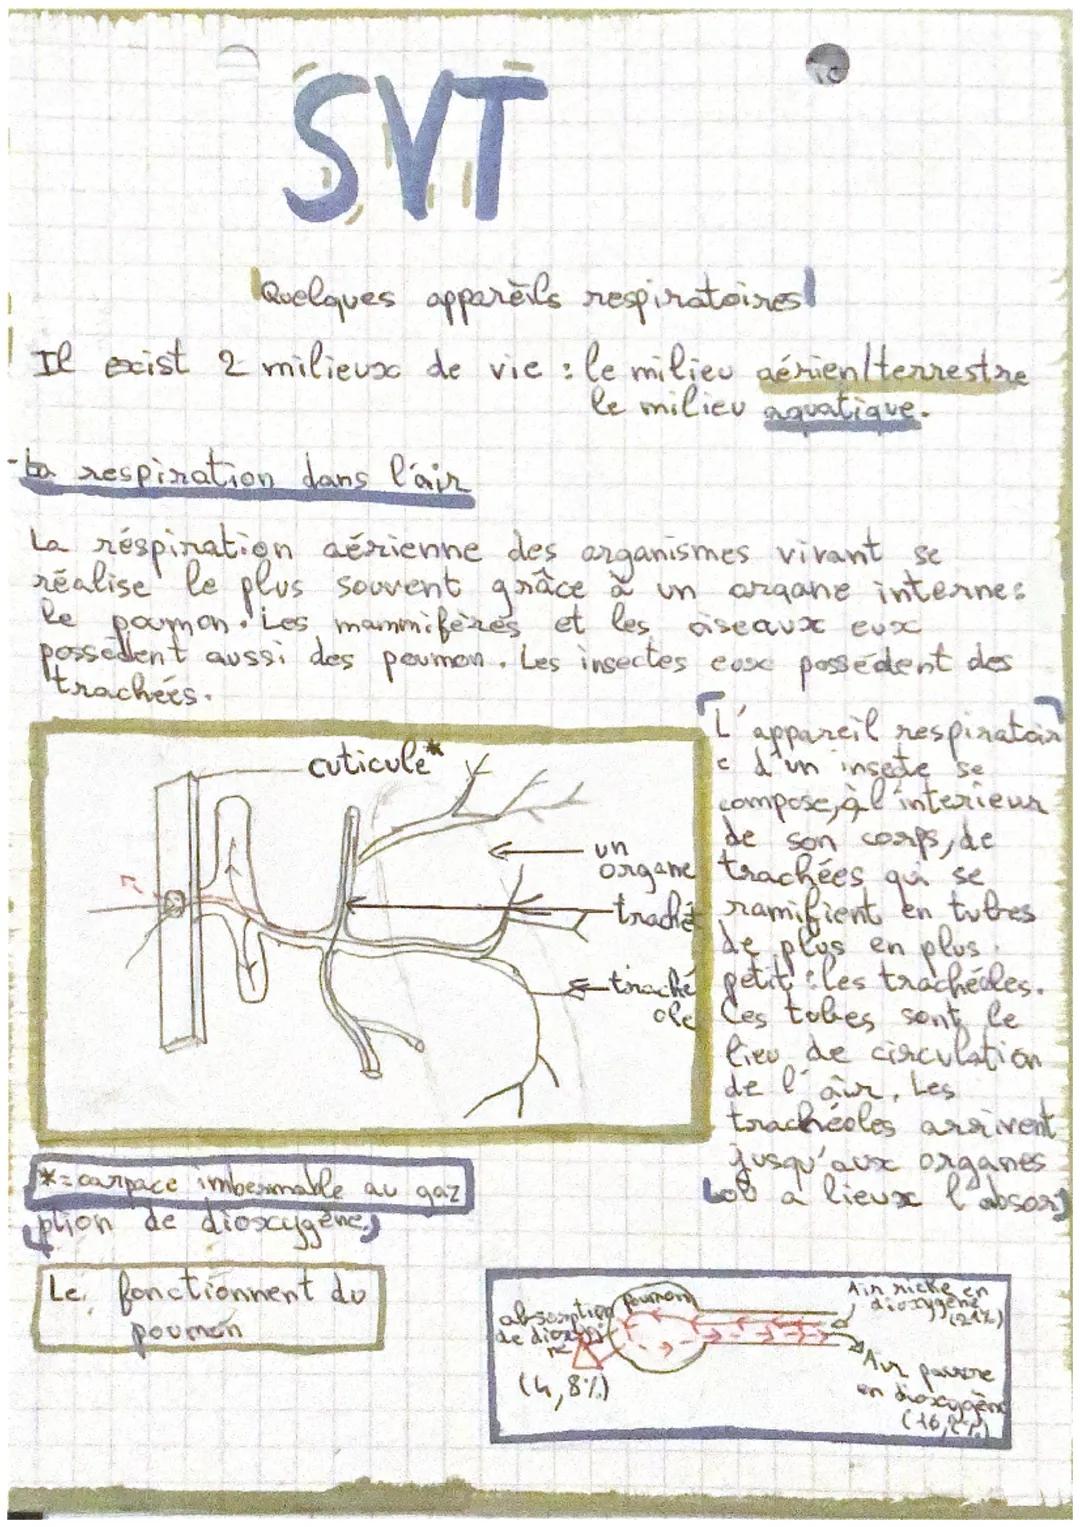 SVT
Quelques apparèils respiratoires
Il exist 2 milieux de vie : le milieu aérien/terrestre
le milieu aquatique.
-La respiration dans l'air
La réspiration aérienne des organismes vivant se
réalise le plus souvent grâce à un organe internes
le poumon. Les mammifères et les oiseaux eux
possèdent aussi des poumon. Les insectes eux possédent des
trachées.
cuticule*
un
organe
traché
traché
ole
L'appareil respiratoir
e d'un insecte se
compose, à l'interieur
de son corps, de
trachées qui se
ramifient en tubes
de plus en plus
petit : les trachéoles.
Ces tubes sont le
lieu de circulation
de l'air. Les
trachéoles arrivent
jusqu'aux organes
où a lieux l'absor
*=carpace imbermable au gaz
ption de dioxygène.
Le fonctionnent du
poumon
absorption
de dioxygè
ne
(4,8%)
poumon
Air riche en
dioxygène
(21%)
Air pauvre
en dioxygène
(16,2%)